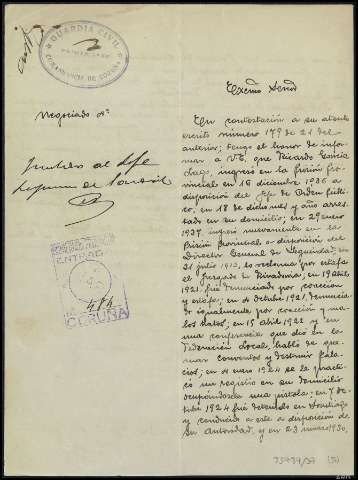 GUARDIA CIVIL
COMANDANCIA DE CORUÑA
Negociado
Excmo Señor
En contestación a su atento
escrito número 179 de 21 del
anterior; tengo el honor de infor-
mar a V.E. que Ricardo García
ingresó en la prisión pro-
vincial en 16 diciembre 1936 a
disposición del Jefe de Orden públi-
co, en 18 de dicho mes y año arres-
tado en su domicilio; en 29 enero
1937, ingresó nuevamente en la
Prisión provincial a disposición del
Director General de Seguridad, en
31 julio 1913, es reclamado por estafa
el Juzgado de Rivadavia, en 19 abril
1921, fué denunciado por coacción
y estafa; en 4 octubre 1921, denuncia-
do igualmente por coacción y ma-
los tratos, en 15 abril 1922 y en
una conferencia que dió en la
Federación Local, habló de que-
mar conventos y destruir pala-
cios; en 4 enero 1924 se le practi-
có un registro en su domicilio
ocupándosele una pistola; en 7 oc-
tubre 1924 fué detenido en Santiago
y conducido a esta a disposición de
su Autoridad, y en 23 marzo 1930,
ENTRADA
484
CORUÑA